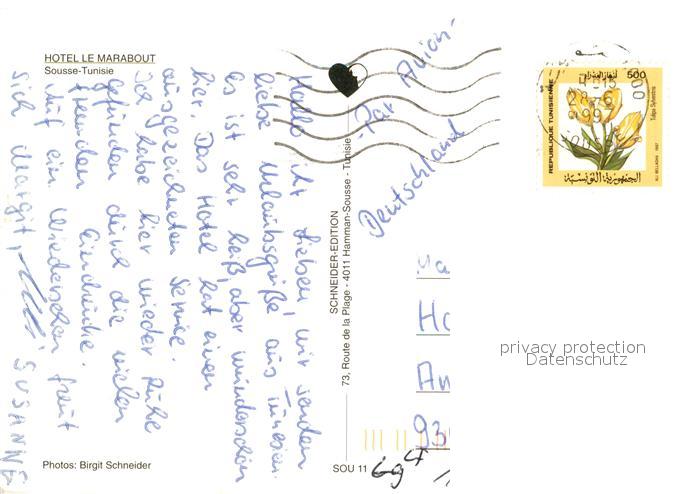 HOTEL LE MARABOUT
Sousse-Tunisie
Hallo ihr Lieben, wir senden
liebe Urlaubsgrüße aus Tunesien.
Es ist sehr heiß, aber wunderschön
hier. Das Hotel hat einen
ausgezeichneten Service.
Ich habe hier wieder Ruhe
gefunden durch die vielen
fremden Eindrücke.
Auf ein Wiedersehen freut
sich Margit,
SUSANNE
Photos: Birgit Schneider
SCHNEIDER-EDITION
73, Route de la Plage - 4011 Hamman-Sousse - Tunisie
SOU 11
Par Avion
Deutschland
Ha
An
93
privacy protection
Datenschutz
REPUBLIQUE TUNISIENNE
500
Tulipa Sylvestris
الجمهورية التونسية